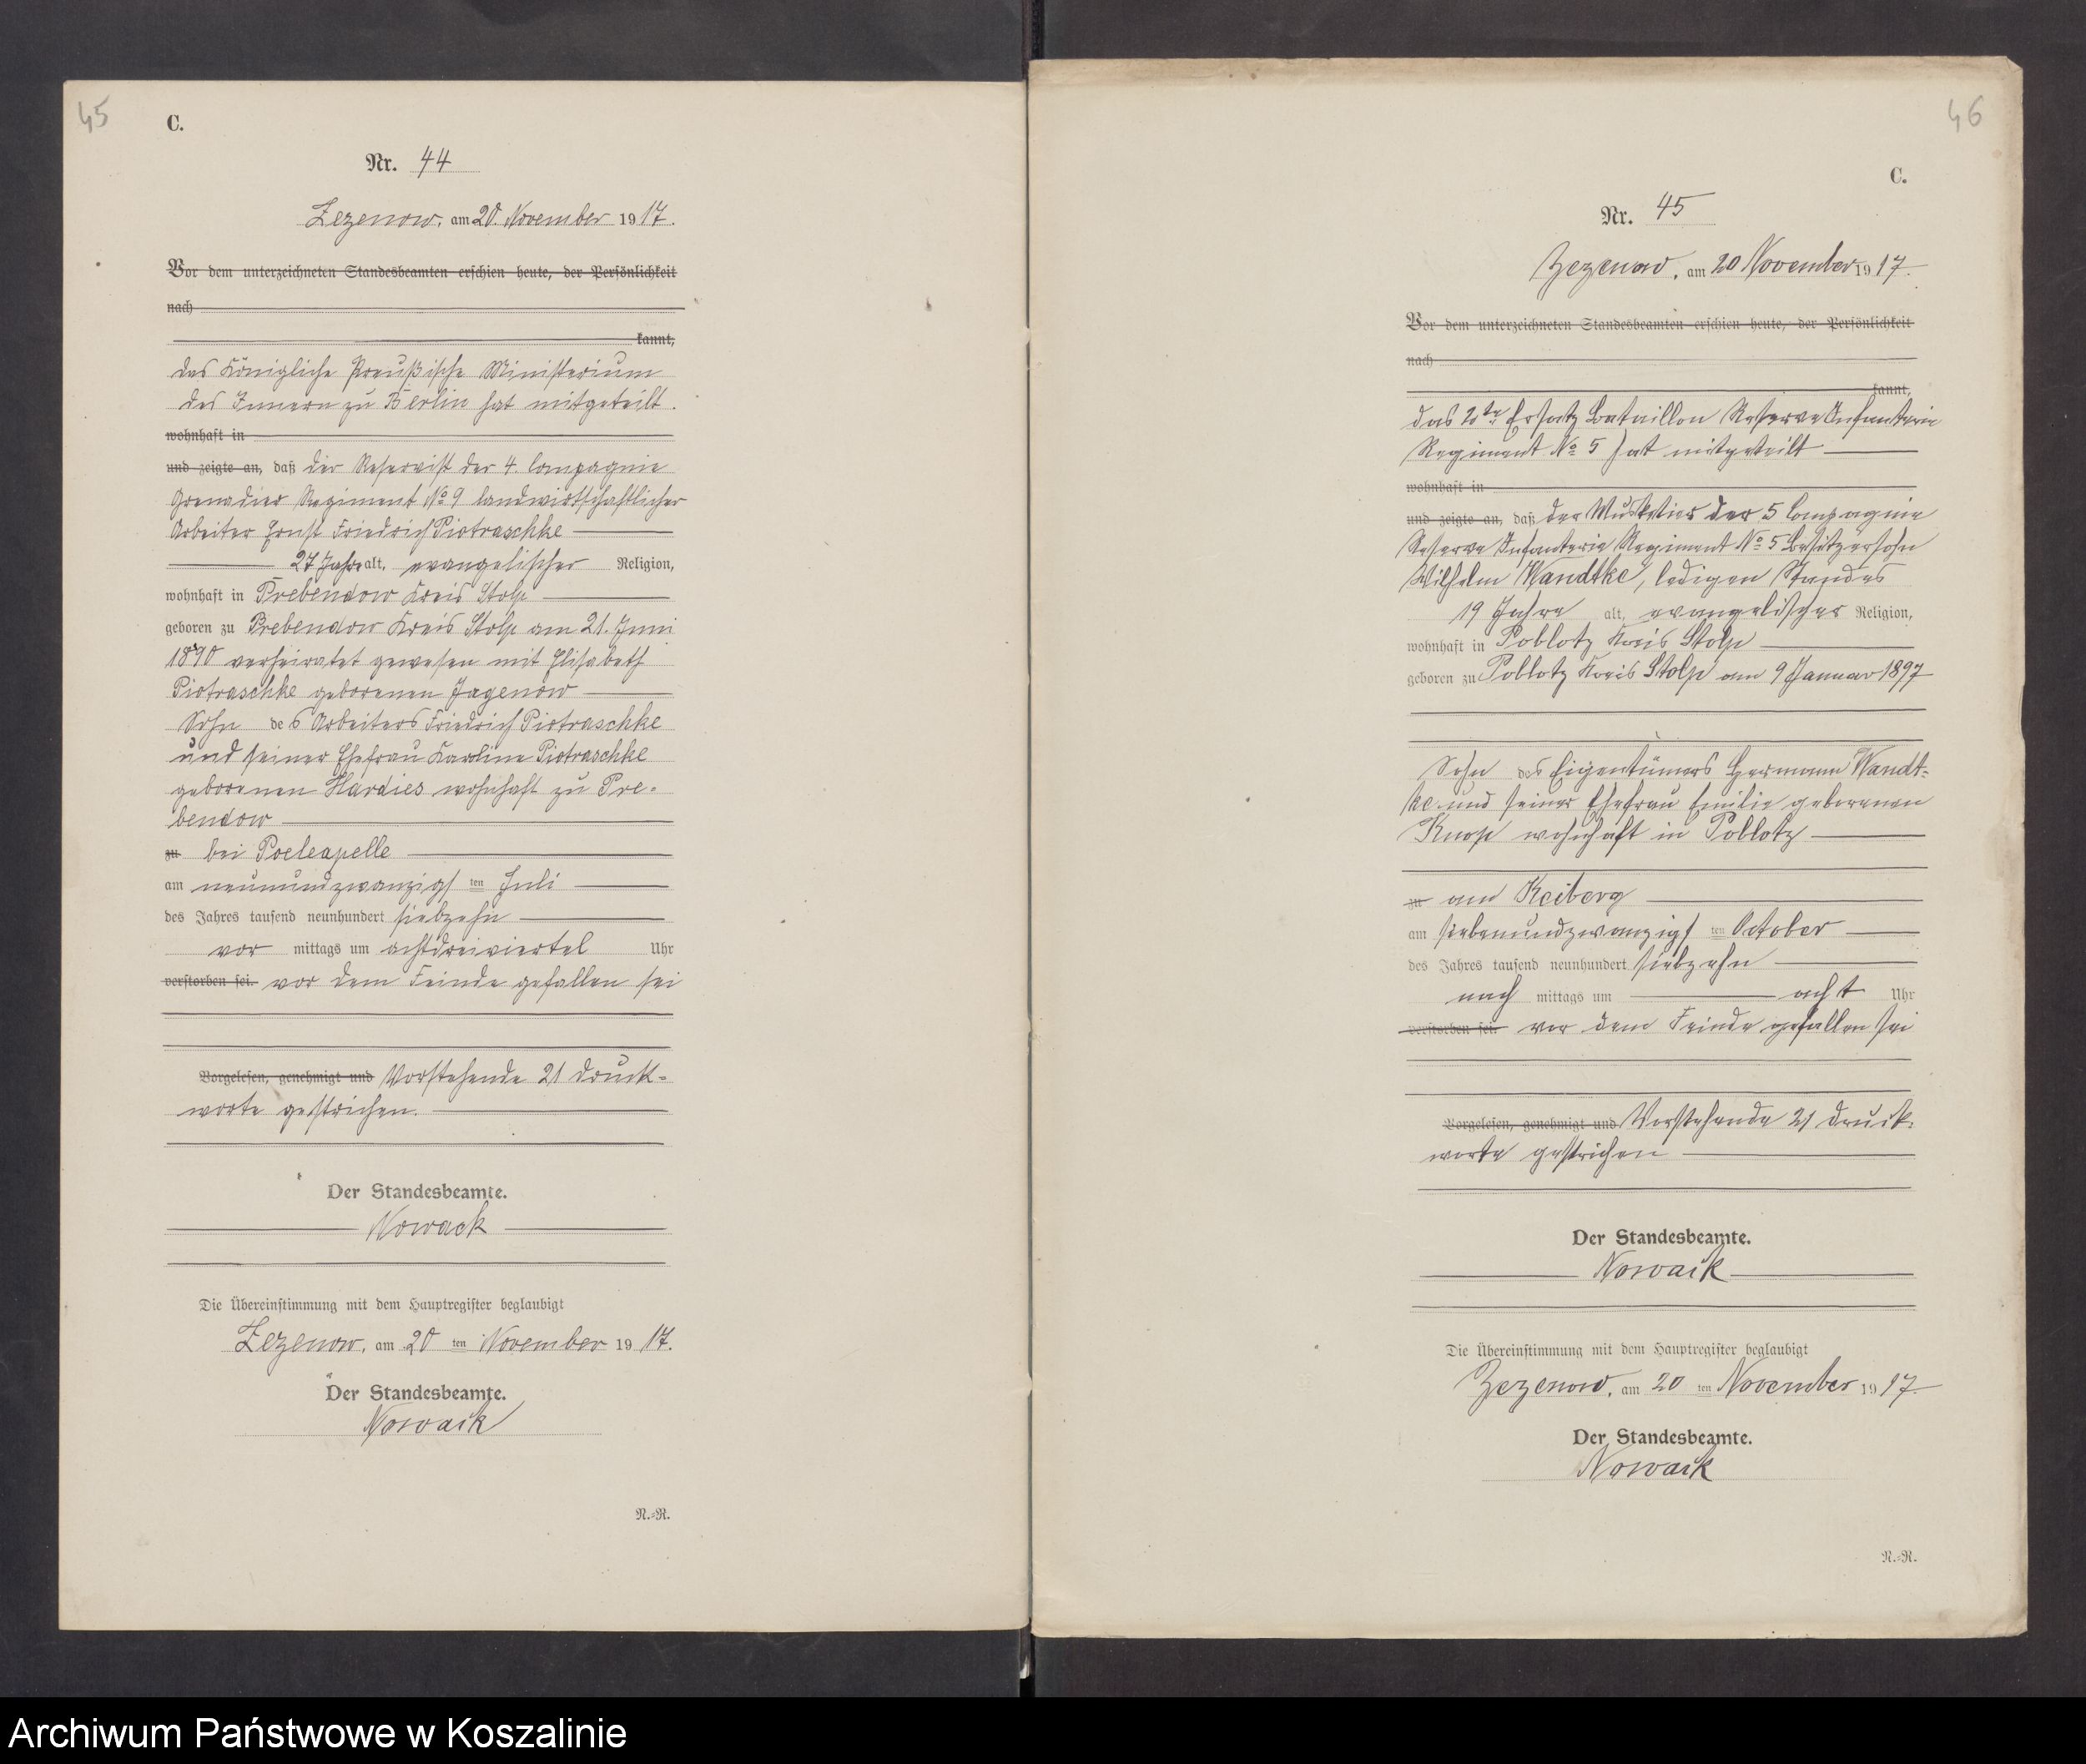 45
C.
Nr. 44
Zezenow, am 20. November 1917.
Vor dem unterzeichneten Standesbeamten erschien heute, der Persönlichkeit
nach
kannt,
das Königliche Preußische Ministerium
des Innern zu Berlin hat mitgeteilt.
wohnhaft in
und zeigte an, daß der Reservist der 4. Compagnie
Grenadier Regiment No 9 landwirtschaftlicher
Arbeiter Ernst Friedrich Piotraschke
27 Jahre alt, evangelischer Religion,
wohnhaft in Prebendow Kreis Stolp
geboren zu Prebendow Kreis Stolp am 21. Juni
1890 verheiratet gewesen mit Elisabeth
Piotraschke geborenen Jagenow
Sohn des Arbeiters Friedrich Piotraschke
und seiner Ehefrau Karoline Piotraschke
geborenen Hardies wohnhaft zu Pre-
bendow
zu bei Poelcapelle
am neunundzwanzigsten Juli
des Jahres tausend neunhundert siebzehn
vor mittags um achtdreiviertel Uhr
verstorben sei. vor dem Feinde gefallen sei
Vorgelesen, genehmigt und Vorstehende 21 Druck-
worte gestrichen.
Der Standesbeamte.
Nowack
Die Übereinstimmung mit dem Hauptregister beglaubigt
Zezenow, am 20 ten November 1917.
Der Standesbeamte.
Nowack
N.=R.
46
C.
Nr. 45
Zezenow, am 20 November 1917.
Vor dem unterzeichneten Standesbeamten erschien heute, der Persönlichkeit
nach
kannt,
das 2te Ersatz Bataillon Reserve Infanterie
Regiment No 5 hat mitgeteilt
wohnhaft in
und zeigte an, daß der Musketier der 5 Compagnie
Reserve Infanterie Regiment No 5 Besitzersohn
Wilhelm Wandtke, ledigen Standes
19 Jahre alt, evangelischer Religion,
wohnhaft in Poblotz Kreis Stolp
geboren zu Poblotz Kreis Stolp am 9 Januar 1897
Sohn des Eigentümers Hermann Wandt-
ke und seiner Ehefrau Emilie geborenen
Knop wohnhaft in Poblotz
zu am Keiberg
am siebenundzwanzigsten October
des Jahres tausend neunhundert siebzehn
nach mittags um acht Uhr
verstorben sei. vor dem Feinde gefallen sei
Vorgelesen, genehmigt und Vorstehende 21 Druck-
worte gestrichen
Der Standesbeamte.
Nowack
Die Übereinstimmung mit dem Hauptregister beglaubigt
Zezenow, am 20 ten November 1917.
Der Standesbeamte.
Nowack
N.=R.
Archiwum Państwowe w Koszalinie